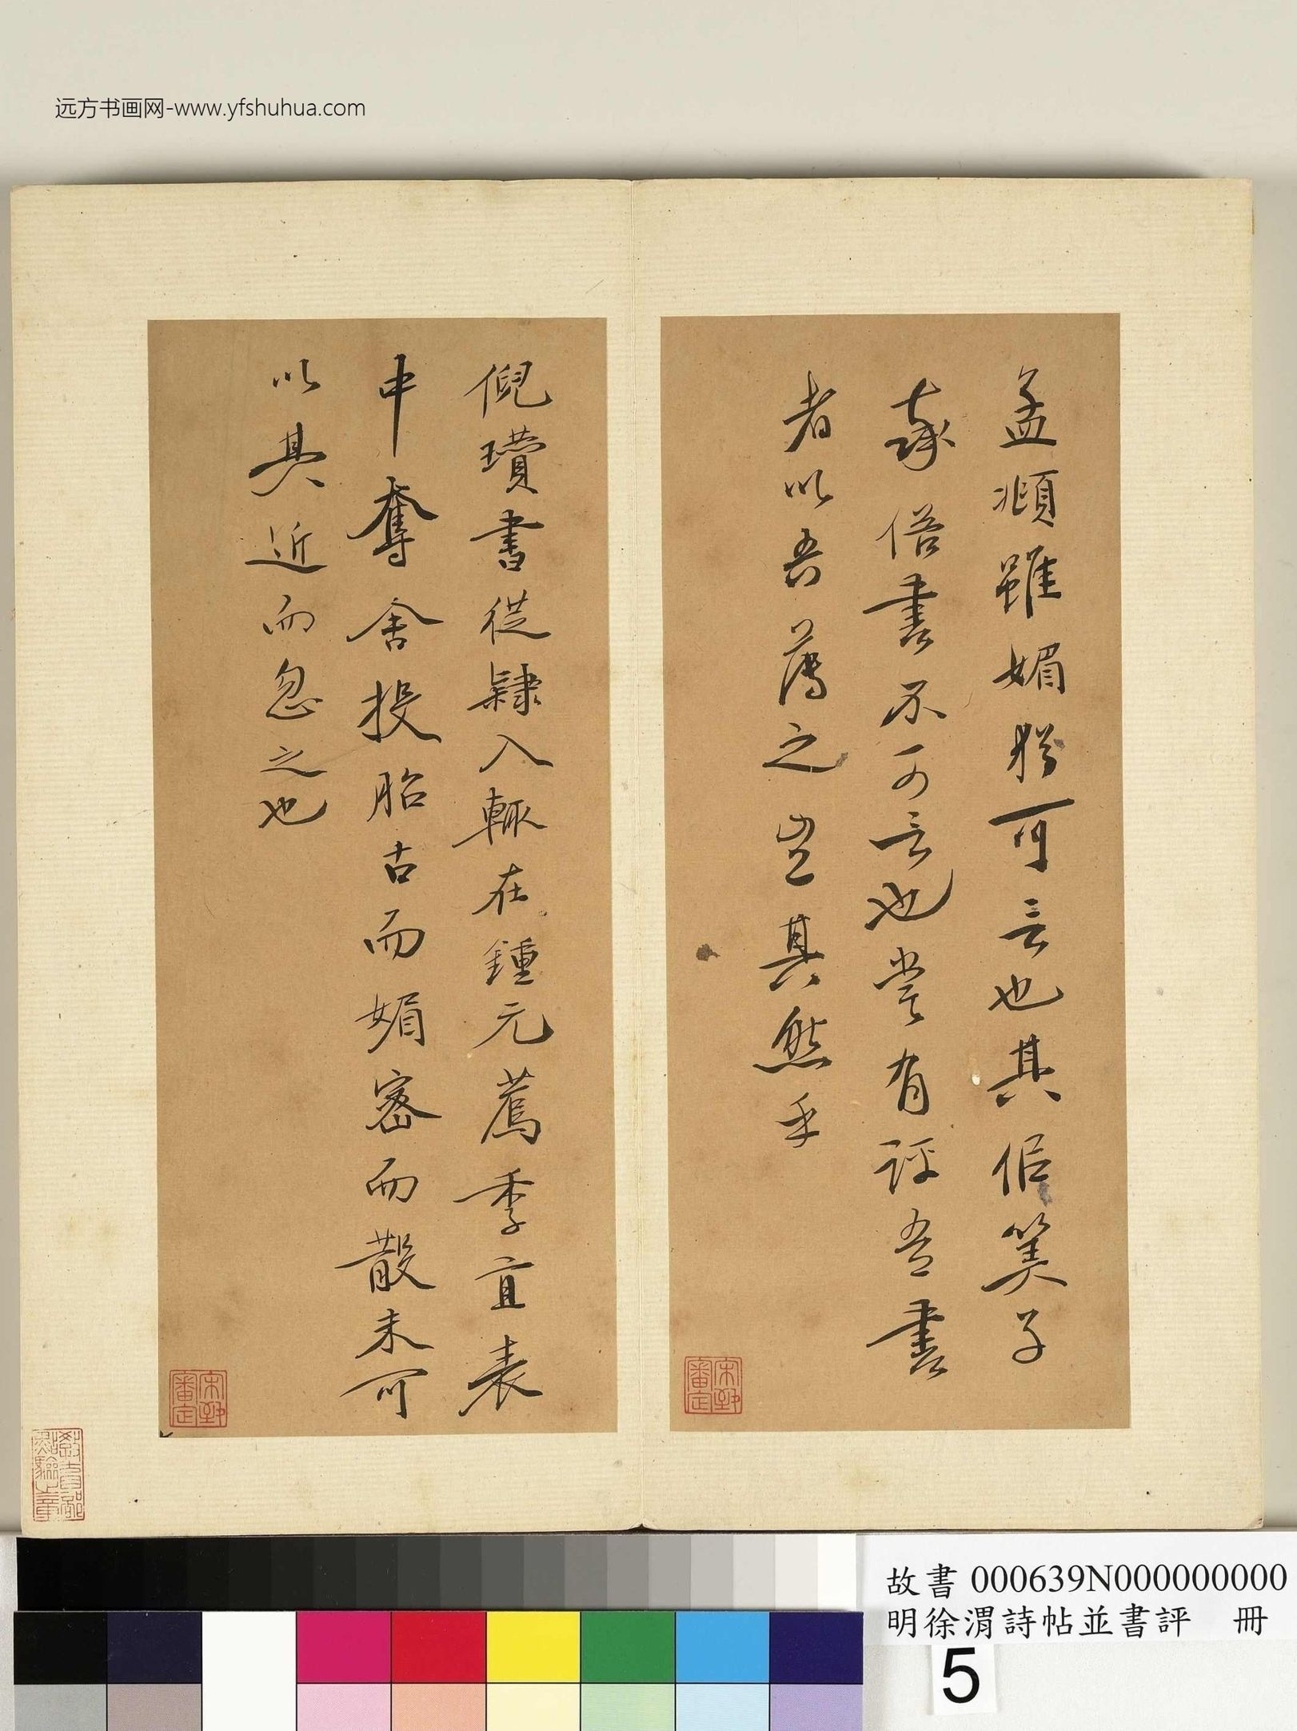 远方书画网-www.yfshuhua.com
孟頫雖媚猶可言也其侣筭子
率俗書不可言也嘗有評吾書
者以吾薄之豈其然乎
倪瓚書從隸入輒在鍾元薦季直表
中奪舍投胎古而媚密而散未可
以其近而忽之也
宋犖審定
故書 000639N000000000
明徐渭詩帖並書評 冊
5